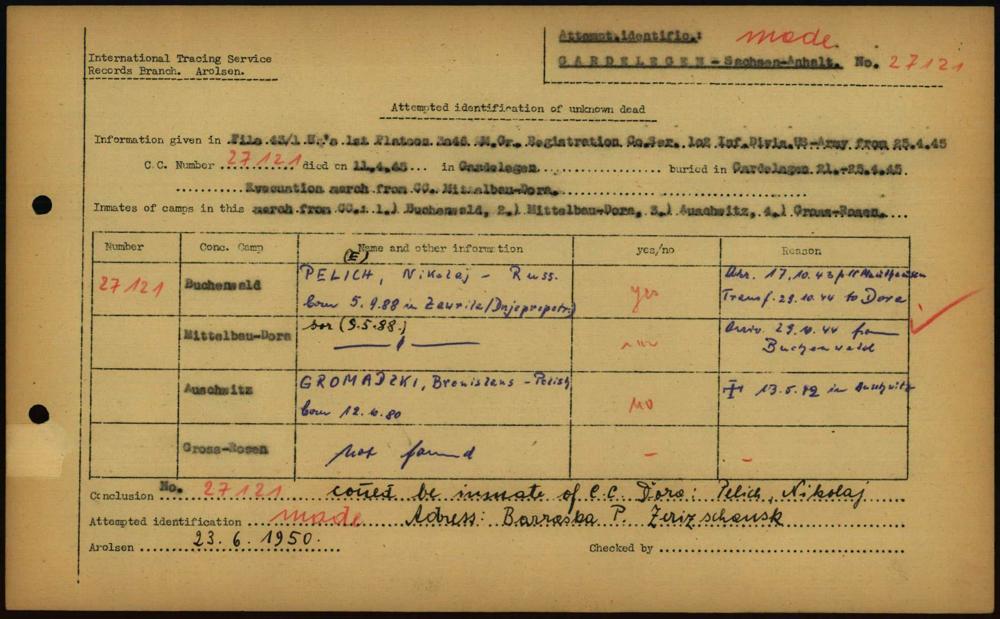 Attempt.identific.: made
International Tracing Service
Records Branch. Arolsen.
GARDELEGEN - Sachsen-Anhalt. No. 27121
Attempted identification of unknown dead
Information given in File 43/1 1st Platoon 3046 .M.Gr. Registration Co.Ser. 102 Inf.Divis.US-Army from 25.4.45
C.C. Number 27121 died on 11.4.45 in Gardelegen buried in Gardelegen 21.-25.4.45
Evacuation march from CC. Mittelbau-Dora.
Inmates of camps in this march from CC: 1.) Buchenwald, 2.) Mittelbau-Dora, 3.) Auschwitz, 4.) Gross-Rosen.
Number Conc. Camp Name and other information yes/no Reason
(E)
27121 Buchenwald PELICH, Nikolaj - Russ. yes Arr. 17.10.43
born 5.9.88 in Transf. 29.10.44 to Dora
Mittelbau-Dora (9.5.88.) Arriv. 29.10.44 from
Buchenwald
Auschwitz GROMADZKI, Bronislaus - Polish no 13.5.42 in Auschwitz
born 12.10.80
Gross-Rosen not found - -
Conclusion No. 27121 could be inmate of C.C. Dora: Pelich, Nikolaj
Attempted identification made Adress: Barraska P.
Arolsen 23.6.1950. Checked by